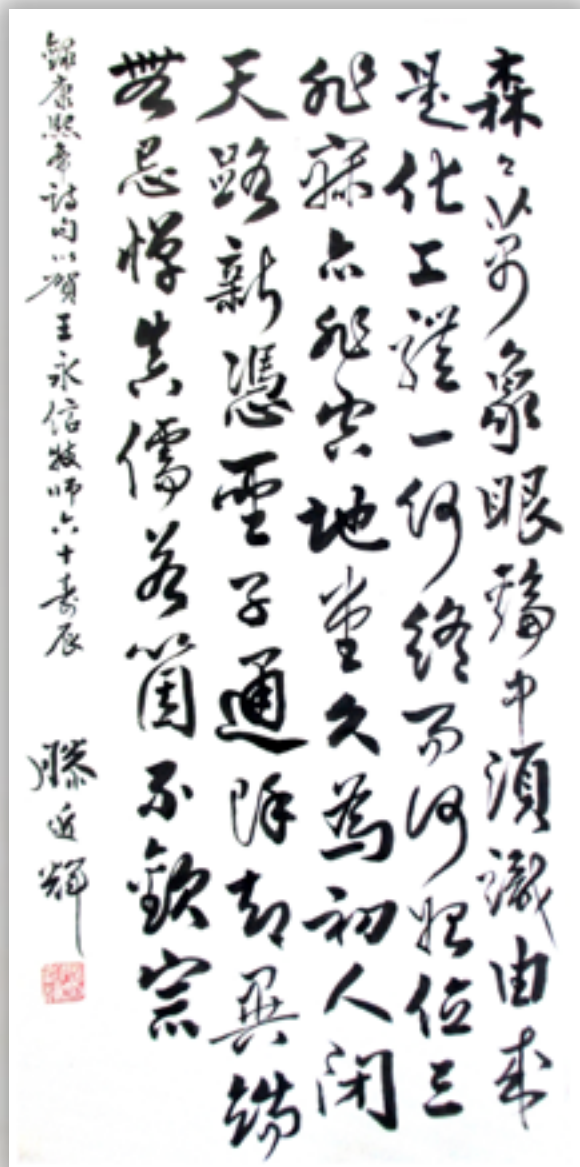 森々萬象眼輪中須識由來
是化工體一何終而何始位三
非寂亦非空地堂久為初人閉
天路新憑聖子通除却異端
無忌憚真儒若箇不欽崇
錄康熙帝詩句以賀王永信牧師六十壽辰
滕近輝